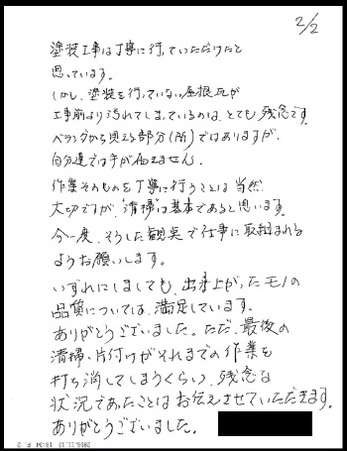 2/2
塗装工事は丁寧に行っていただけたと
思っています。
しかし、塗装を行っていない屋根瓦が
工事前より汚れてしまっているのは、とても残念です。
ベランダから見える部分(所)ではありますが、
自分達では手が出ません。
作業そのものを丁寧に行うことは当然
大切ですが、"清掃"は基本であると思います。
今一度、そうした観点で仕事に取組まれる
ようお願いします。
いずれにしましても、出来上がったモノの
品質については、満足しています。
ありがとうございました。ただ、最後の
清掃・片付けがそれまでの作業を
打ち消してしまうくらい、残念な
状況であったことはお伝えさせていただきます。
ありがとうございました。